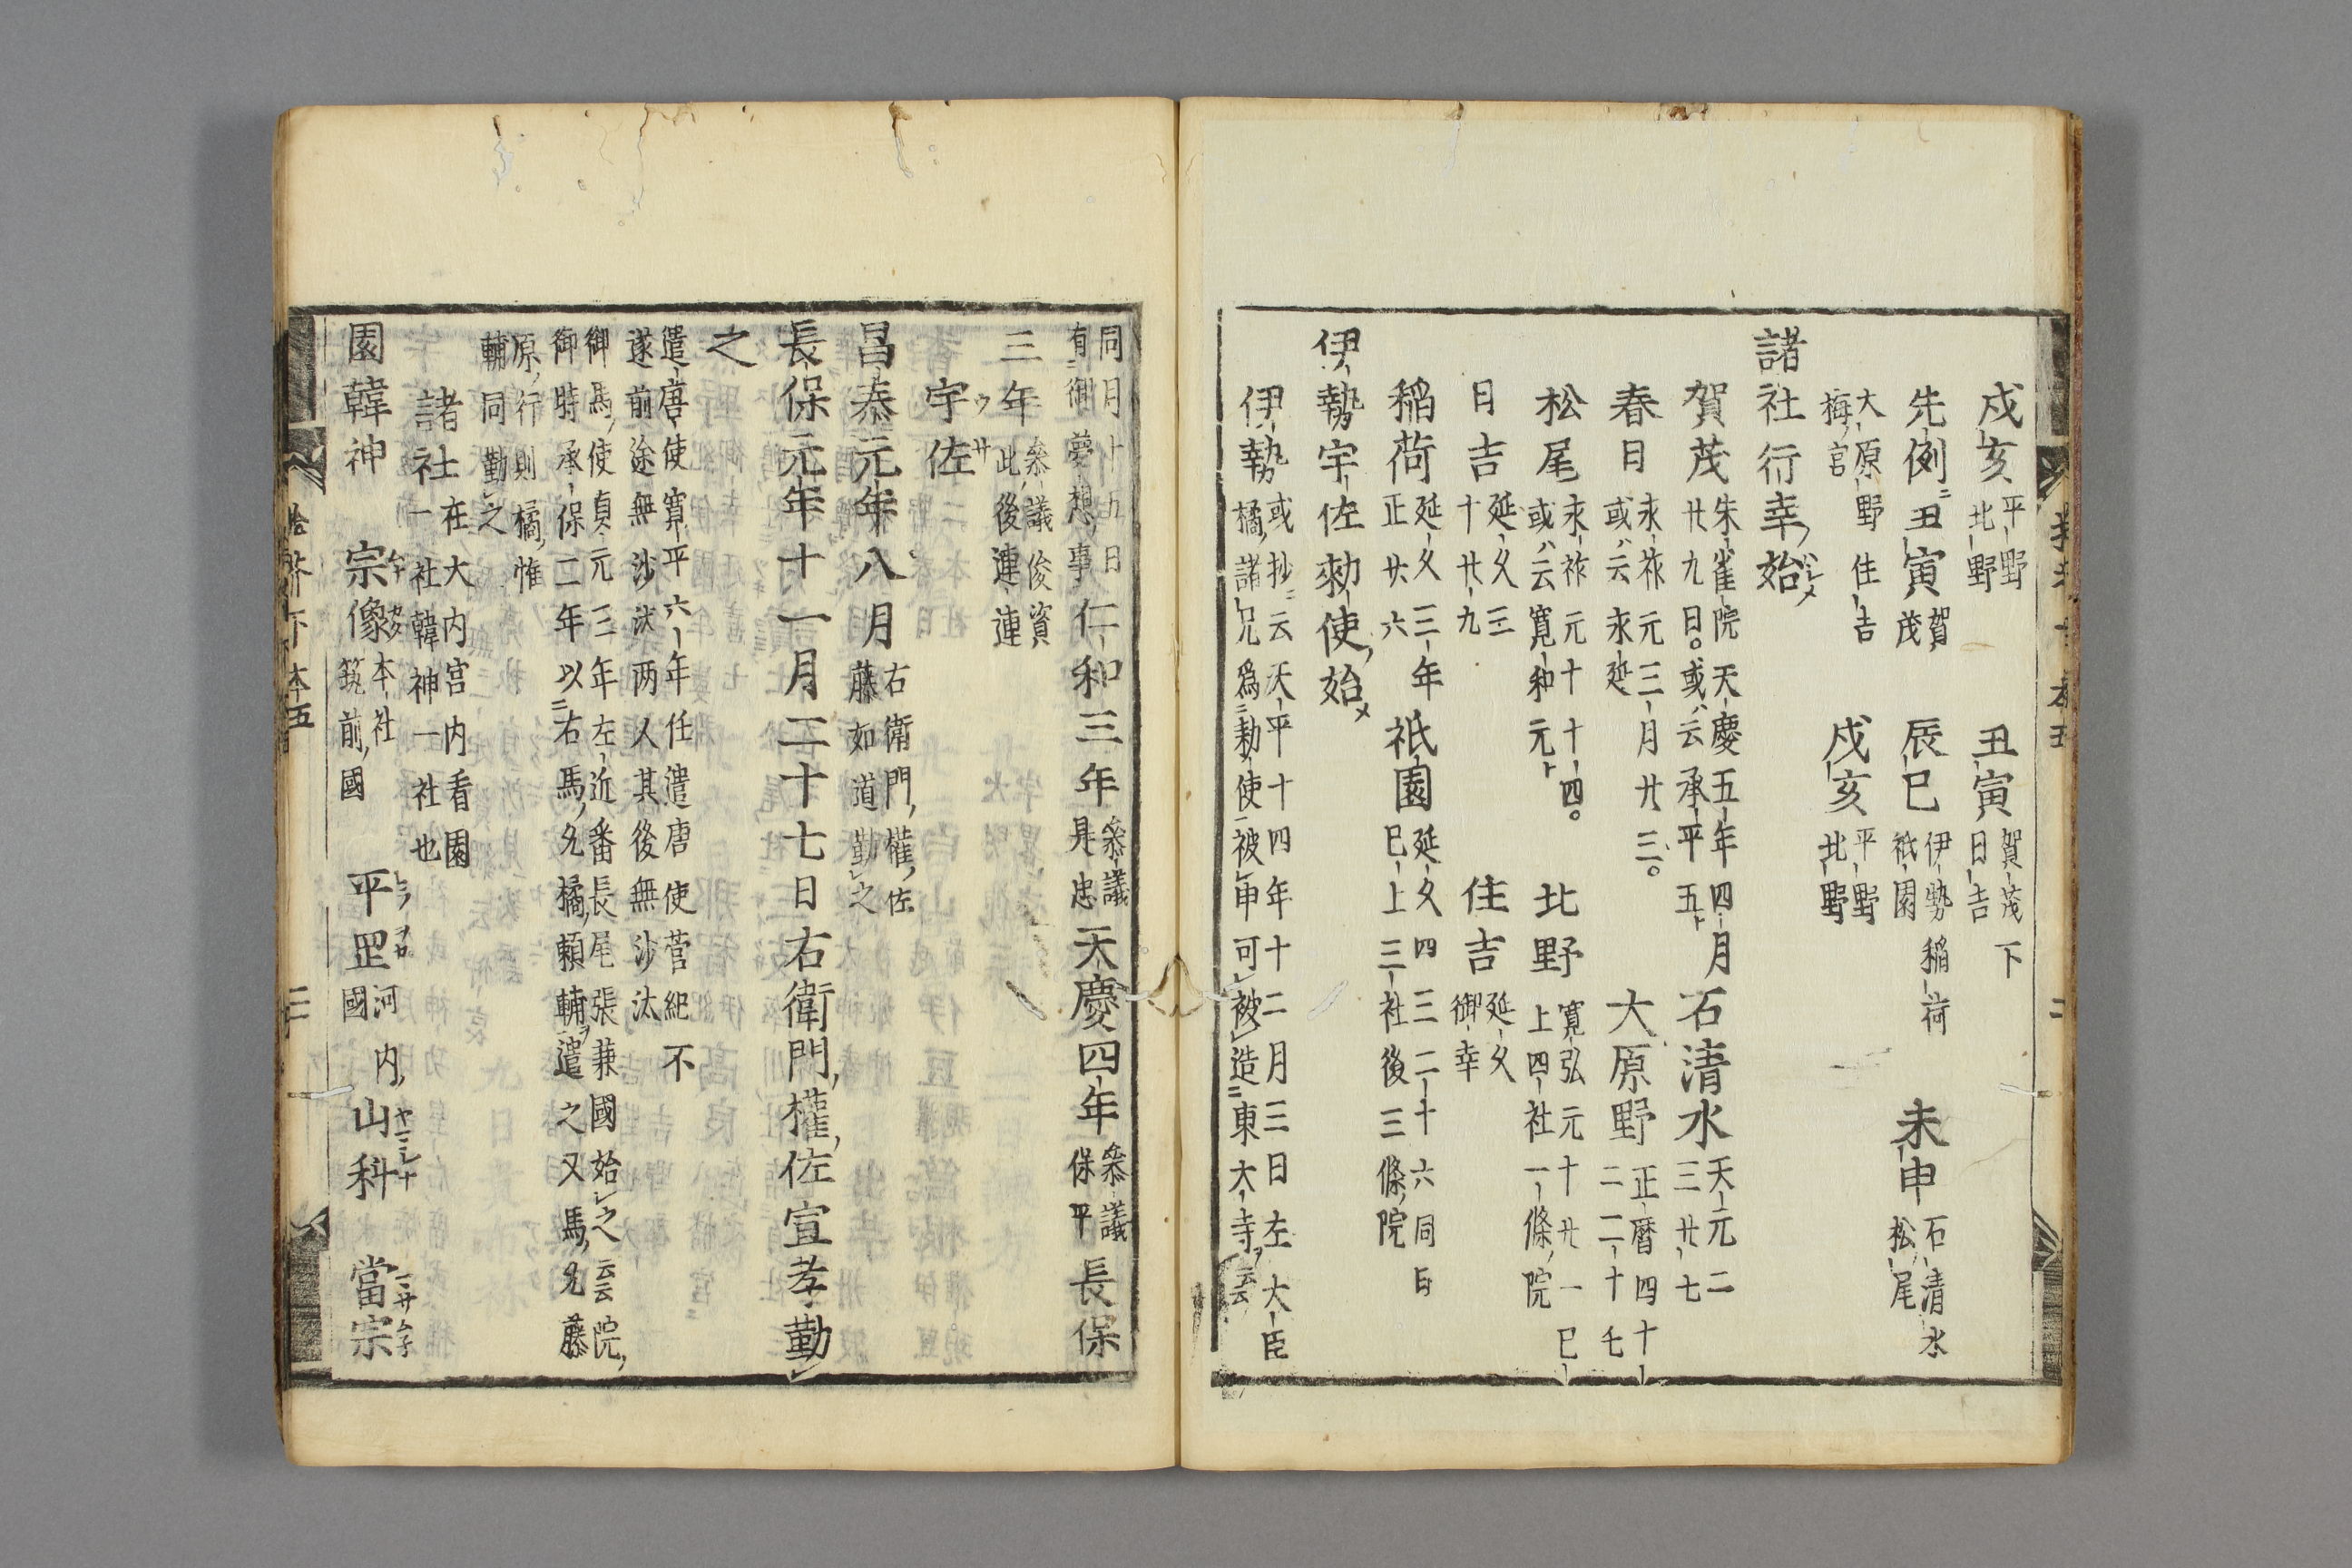 戍亥 平野 北野 丑寅 賀茂下 日吉
先例ニ丑寅 賀茂 辰巳 伊勢稲荷 祇園 未申 石清水 松尾
大原野住吉 梅宮 戍亥 平野 北野
諸社行幸ノ始
賀茂 朱雀院天慶五年四月 廿九日。或ハ云承平五 石清水 天元二 三廿七
春日 永祚元三月廿三。 或ハ云永延 大原野 正暦四十一 二二十七
松尾 永祚元十十四。 或ハ云寛和元 北野 寛弘元十廿一巳 上四社一條ノ院
日吉 延久三 十廿九 住吉 延久 御幸
稲荷 延久三年 正廿六 祇園 延久四三二十六同日 巳上三社後三條ノ院
伊勢宇佐勅使ノ始メ
伊勢 或抄ニ云天平十四年十二月三日左大臣 橘ノ諸兄爲勅使被申可被造東大寺ヲ云云
同月十五日 有御夢想ノ事 仁和三年 叅議 是忠 天慶四年 叅議 保平 長保
三年 叅議俊賢 此後連連
宇佐
昌泰元年八月 右衛門ノ權ノ佐 藤如道勤之
長保元年十一月二十七日右衛門ノ權ノ佐宣孝勤
之
遣唐使寛平六年任遣唐使菅紀不
遂前途無沙汰两人其後無沙汰
御馬ノ使貞元三年左近番長尾張兼國始之云云院ノ
御時承保二年以右馬ノ允橘ノ頼輔ヲ遣之又馬ノ允藤
原ノ行則橘ノ惟
輔同勤之
諸社 在大内宮内省園 一社韓神一社也
園韓神 宗像 本社 筑前ノ國 平岡 河内ノ 國 山科 當宗